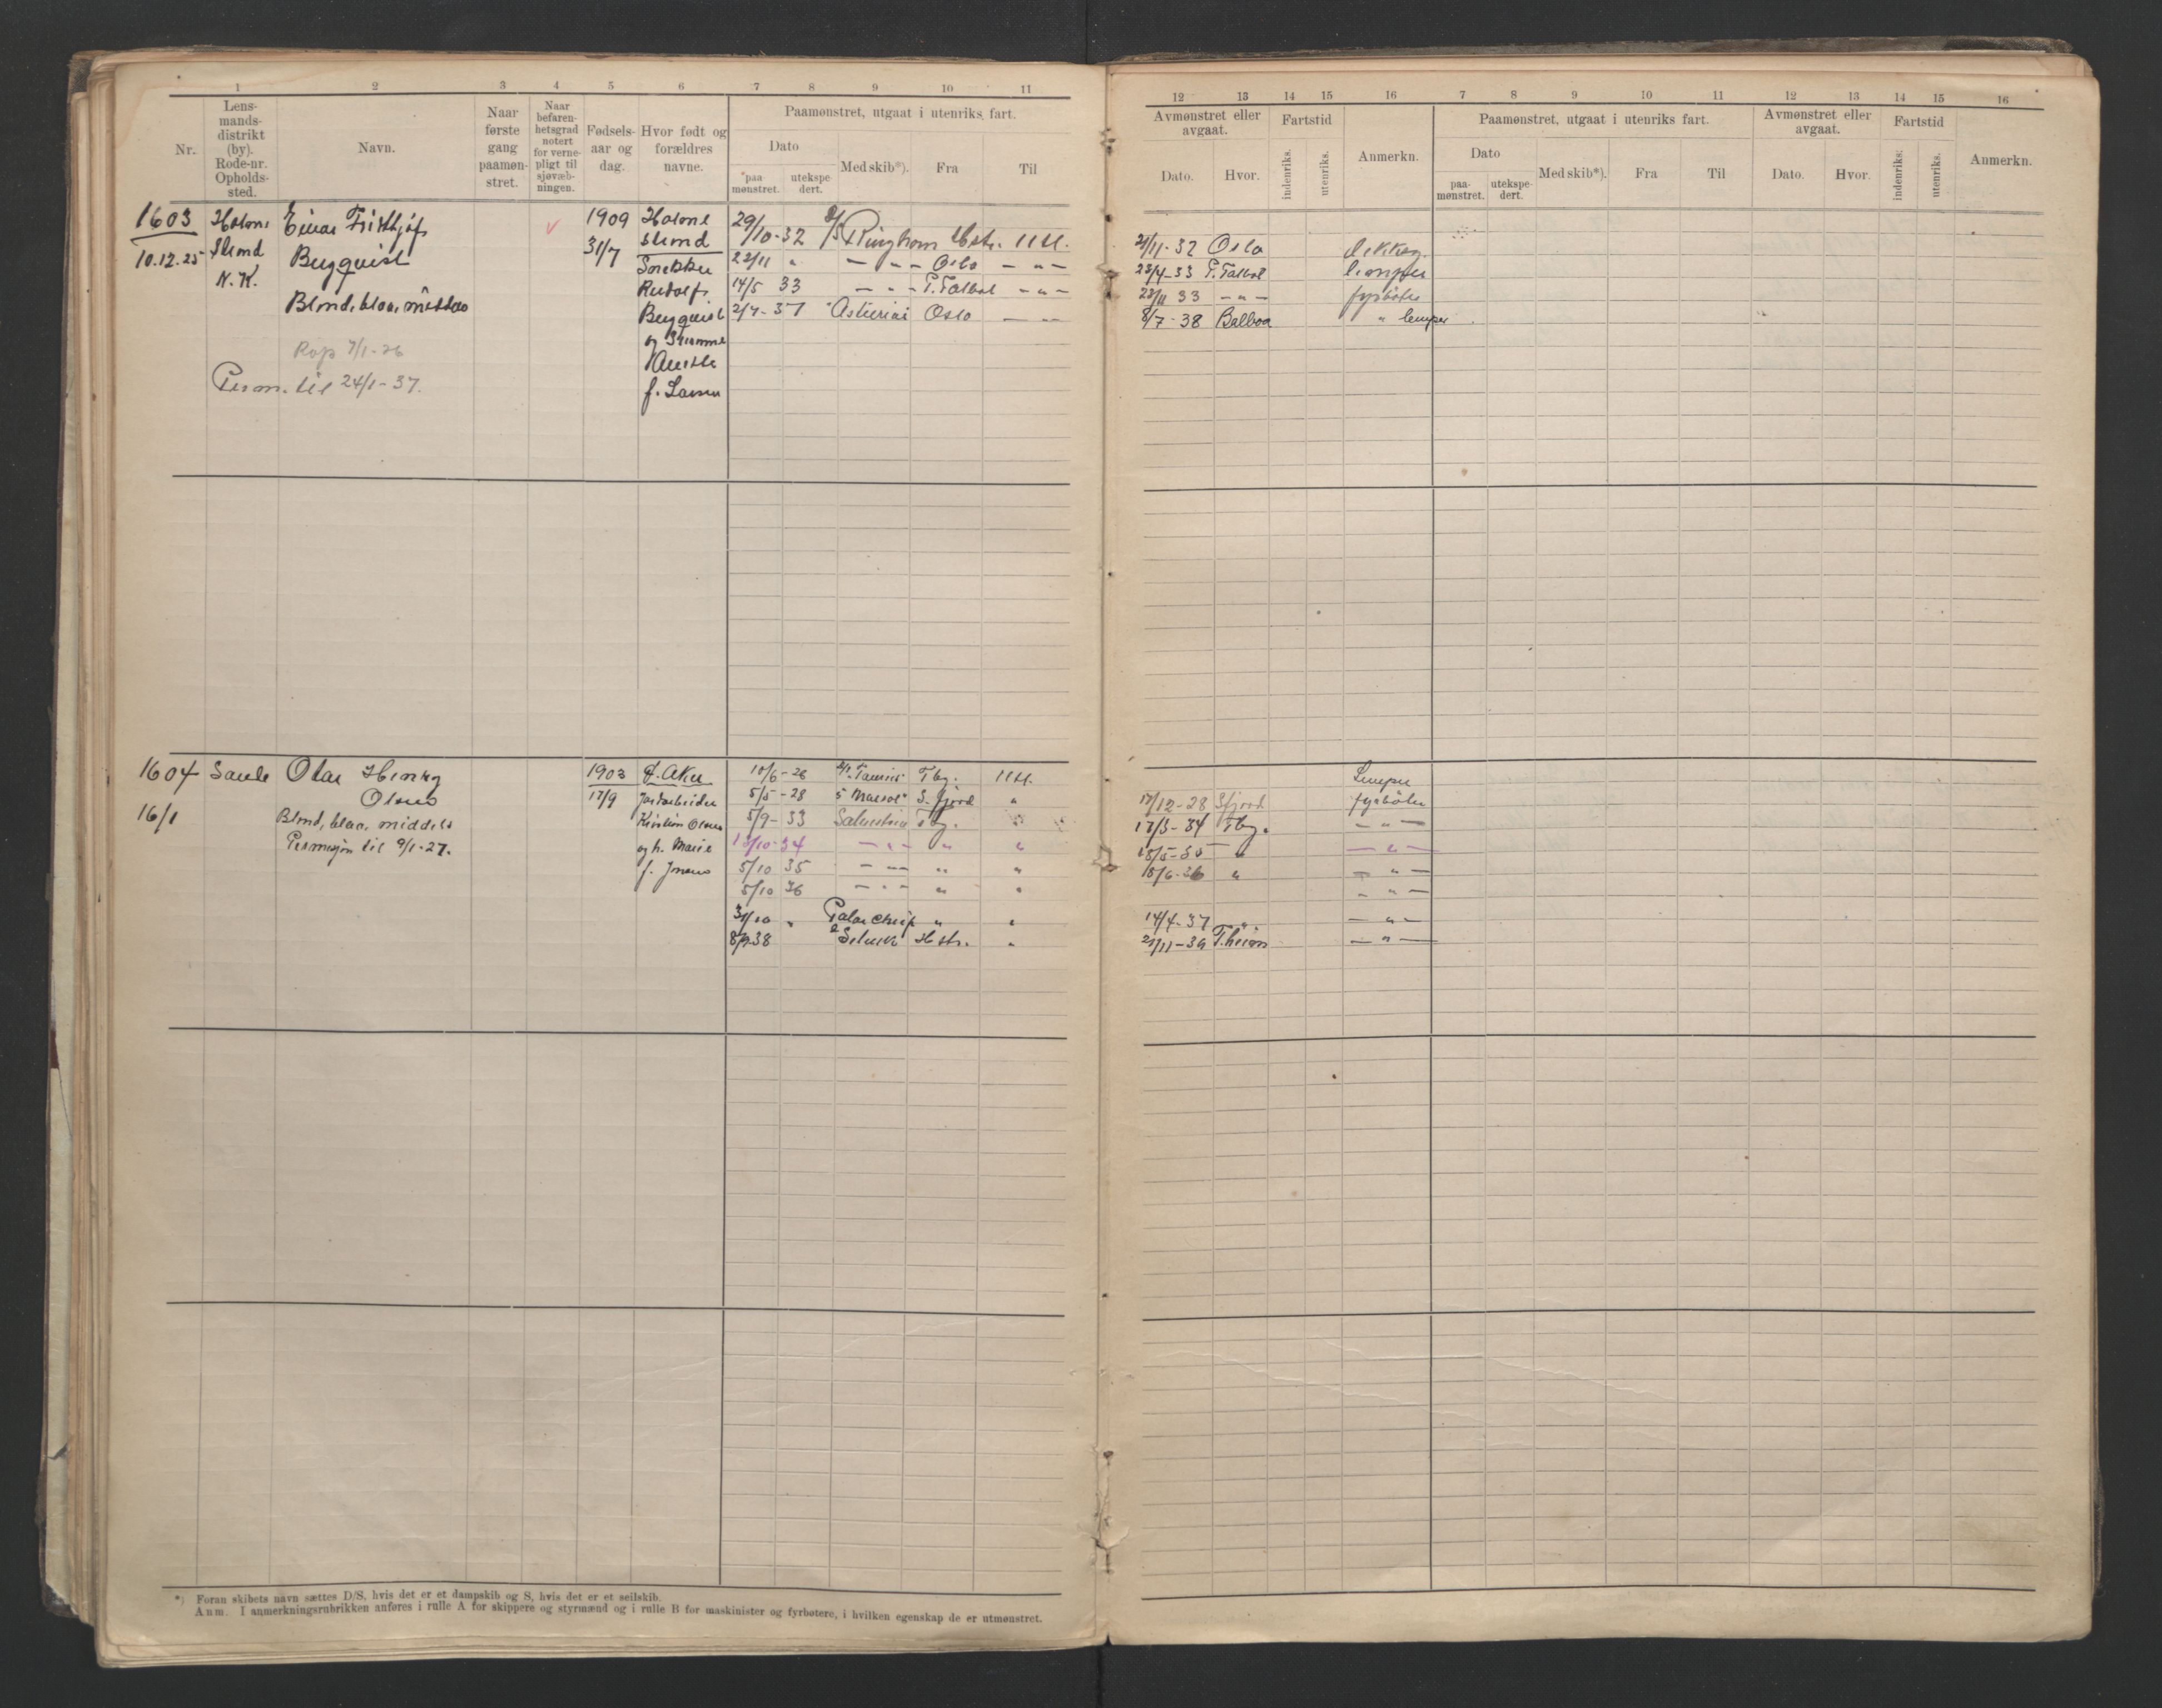 1 2 3 4 5 6 7 8 9 10 11
Nr.
Lens-
mands-
distrikt
(by).
Rode-nr.
Opholds-
sted.
Navn.
Naar
første
gang
paamøn-
stret.
Naar
befaren-
hetsgrad
notert
for verne-
pligt til
sjøvæb-
ningen.
Fødsels-
aar og
dag.
Hvor født og
forældres
navne.
Paamønstret, utgaat i utenriks fart.
Dato
paa-
mønstret.
utekspe-
dert.
Med skib*).
Fra
Til
1603 Holme Einar Frithjof 1909 Holme 29/10-32 D/S Ringhorn Hstr. Utl.
10.12.25 strand Bergquist 31/7 strand 22/11 " — " — Oslo — " —
N.K. Snekker
Blond, blaa, middels Rudolf 14/5 33 — " — P. Talbot — " —
Bergquist 2/7-37 Asturias Oslo — " —
Rop 7/1-26 og hustru
Perm. til 24/1-37. Aasta
f. Larsen
1604 Sande Olav Henry 1903 V. Aker 10/6-26 D/S Taurus Tbg. Utl.
Olsen 17/9 Jordarbeider 5/5-28 S. Fjord "
16/1 Blond, blaa, middels Kristian Olsen 5/9-33 Salvestria Tbg. "
Permisjon til 9/1-27. og h. Marie 13/10-34 — " — " "
f. Jensen 5/10 35 — " — " "
5/10 36 — " — " "
31/10 " Polar Chief " "
8/9 38 Hstr. "
*) Foran skibets navn sættes D/S, hvis det er et dampskib og S, hvis det er et seilskib.
Anm. I anmerkningsrubrikken anføres i rulle A for skippere og styrmænd og i rulle B for maskinister og fyrbøtere, i hvilken egenskap de er utmønstret.
12 13 14 15 16 7 8 9 10 11 12 13 14 15 16
Avmønstret eller
avgaat.
Dato.
Hvor.
Fartstid
indenriks.
utenriks.
Anmerkn.
Paamønstret, utgaat i utenriks fart.
Dato
paa-
mønstret.
utekspe-
dert.
Med skib*).
Fra
Til
Avmønstret eller
avgaat.
Dato.
Hvor.
Fartstid
indenriks.
utenriks.
Anmerkn.
21/11-32 Oslo dekksg.
23/4-33 P. Talbot lemper
23/11 33 — " — fyrbøter
8/7-38 Balboa " lemper
Lemper
17/12-28 Sfjord fyrbøter
17/3-34 Tbg. — " —
18/5-35 " — " —
18/6-36 " — " —
— " —
14/4-37 " — " —
21/11-39 T.heim — " —